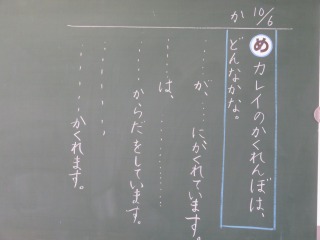 10/6
か
め カレイのかくれんぼは、
どんなかな。
……が……にかくれています。
……は、…………
……からだをしています。
………、
……かくれます。